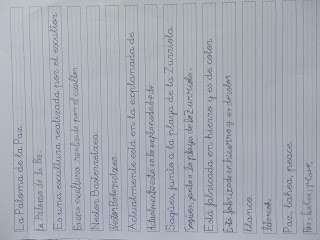 La Paloma de la Paz
La Paloma de la Paz.
Es una escultura realizada por el escultor
Es una escultura realizada por el escultor
Néstor Basterretxea.
Néstor Basterretxea.
Actualmente está en la explanada de
Actualmente está en la explanada de
Sagües, junto a la playa de la Zurriola
Sagües, junto a la playa de la Zurriola.
Está fabricada en hierro y es de color
Está fabricada en hierro y es de color
blanco.
blanco.
Paz, bakea, peace.
Paz, bakea, peace.